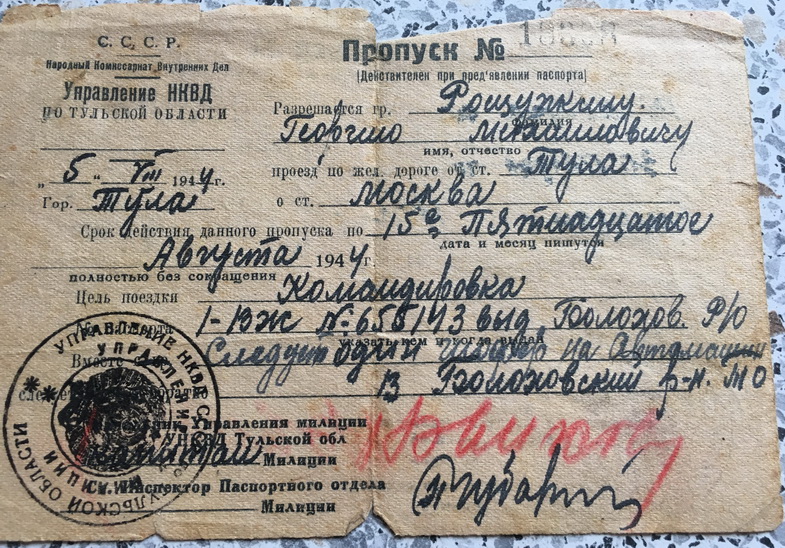 С. С. С. Р.
Народный Комиссариат Внутренних Дел
Управление НКВД
ПО ТУЛЬСКОЙ ОБЛАСТИ
„ 5 " VIII 1944 г.
Гор. Тула
Пропуск №
(Действителен при пред'явлении паспорта)
Разрешается гр.
фамилия
Георгию Михайловичу
имя, отчество
проезд по жел. дороге от ст. Тула
до ст. Москва
Срок действия данного пропуска по 15е Пятнадцатое
дата и месяц пишутся
Августа 1944 г.
полностью без сокращения
Цель поездки Командировка
№ паспорта I-ВЖ № 655143 выд Болохов. Р/О
указать кем и когда выдан
Вместе с Следует один на Автомашин
следует обратно В Болоховский р-н. МО
Начальник Управления милиции
УНКВД Тульской обл
капитан Милиции
Ст. Инспектор Паспортного отдела
Милиции
УПРАВЛЕНИЕ НКВД С
ТУЛЬСКОЙ ОБЛАСТИ
УПРАВЛЕНИЕ МИЛИЦИИ